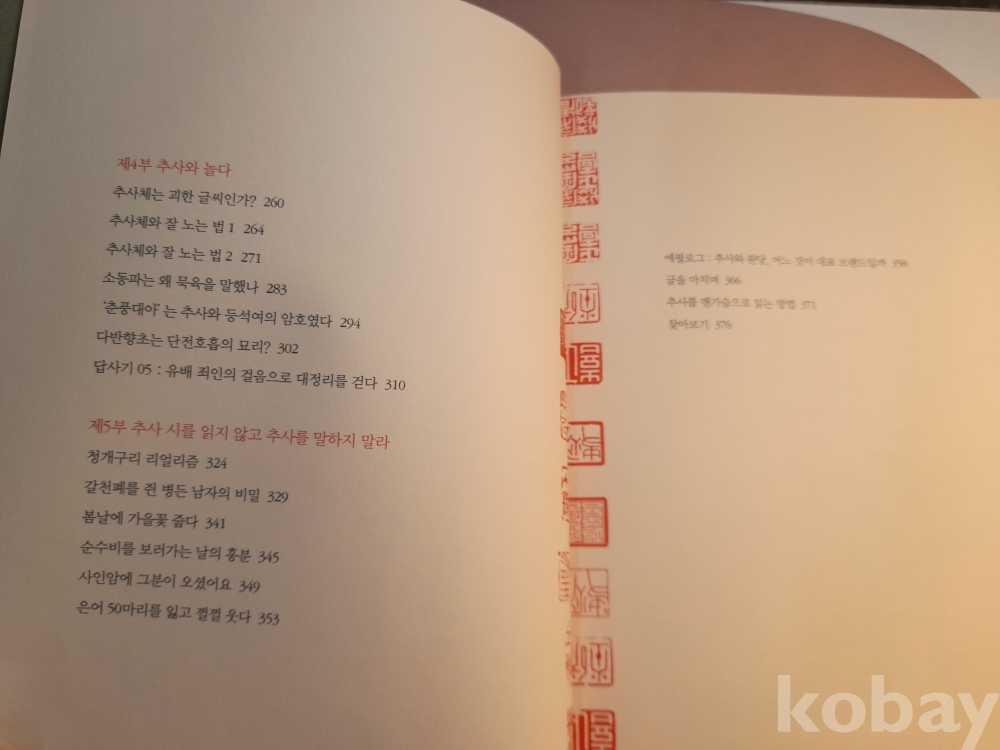 제4부 추사와 놀다
추사체는 괴한 글씨인가? 260
추사체와 잘 노는 법 1 264
추사체와 잘 노는 법 2 271
소동파는 왜 묵육을 말했나 283
‘춘풍대아’는 추사와 등석여의 암호였다 294
다반향초는 단전호흡의 묘리? 302
답사기 05 : 유배 죄인의 걸음으로 대정리를 걷다 310
제5부 추사 시를 읽지 않고 추사를 말하지 말라
청개구리 리얼리즘 324
갈천폐를 쥔 병든 남자의 비밀 329
봄날에 가을꽃 줍다 341
순수비를 보러가는 날의 흥분 345
사인암에 그분이 오셨어요 349
은어 50마리를 잃고 껄껄 웃다 353
에필로그 : 추사와 완당, 어느 것이 대표 브랜드일까 358
글을 마치며 366
추사를 맨가슴으로 읽는 방법 371
찾아보기 376
kobay